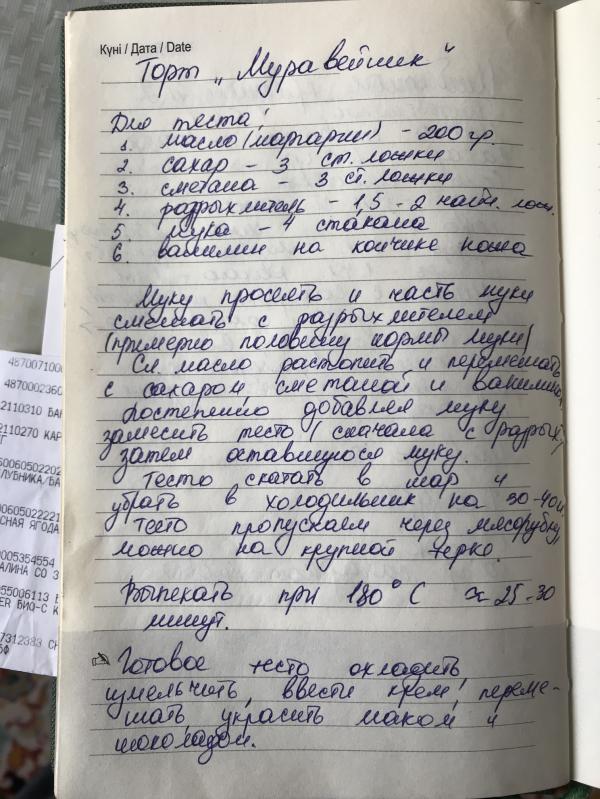 Күні / Дата / Date
Торт „Муравейник"
Для теста:
1. масло (маргарин) - 200 гр.
2. сахар - 3 ст. ложки
3. сметана - 3 ст. ложки
4. разрыхлитель - 1,5 - 2 чайн. лож.
5. мука - 4 стакана
6. ванилин на кончике ножа
Муку просеять и часть муки
смешать с разрыхлителем
(примерно половину нормы муки)
Сл. масло растопить и перемешать
с сахаром, сметаной и ванилином,
Постепенно добавляя муку
замесить тесто (сначала с разрых.,
затем оставшуюся муку.
Тесто скатать в шар и
убрать в холодильник на 30-40м
Тесто пропускаем через мясорубку,
можно на крупной терке.
Выпекать при 180°С ≈ 25-30
минут.
Готовое тесто охладить,
измельчить, ввести крем, переме-
шать, украсить маком и
шоколадом.
48700710
4870002360
2110310 БАН
2110270 КАР
60060502202
ЛУБНИКА/БА
0060502221
СНАЯ ЯГОДА
0005354554
АЛИНА СО З
55006113 В
ER БИО-С К
7312383 СН